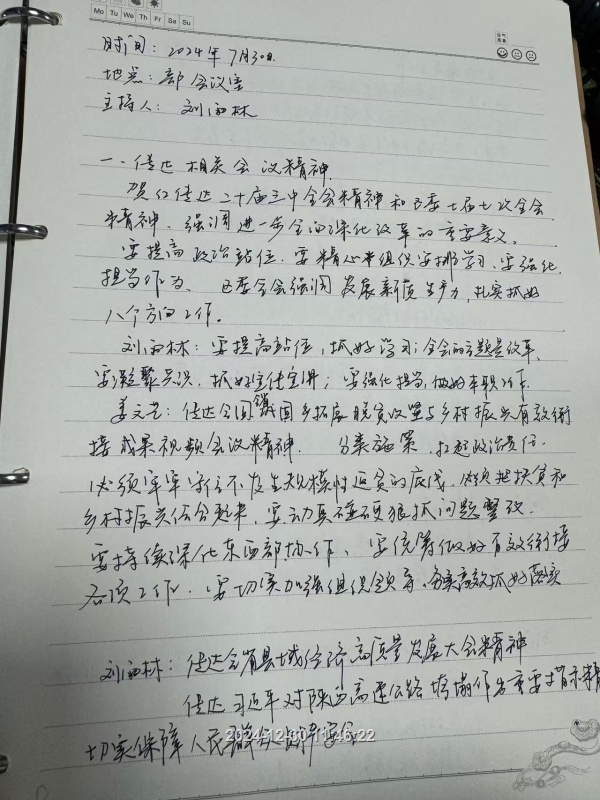 Mo Tu We Th Fr Sa Su
时间：2024年7月30日.
地点：部会议室
主持人：刘西林
一.传达相关会议精神.
贺红传达二十届三中全会精神和区委七届七次全会
精神.强调进一步全面深化改革的重要意义.
要提高政治站位.要精心来组织安排学习.要强化
担当作为. 区委全会强调发展新质生产力,扎实抓好
八个方面工作.
刘西林：要提高站位,抓好学习;全会的主题是改革.
要凝聚共识,抓好宣传宣讲;要强化担当,做好本职工作
姜文艺：传达全国 巩固拓展脱贫攻坚与乡村振兴有效衔
接成果视频会议精神. 分类施策.扛起政治责任.
必须牢牢守住不发生规模性返贫的底线.必须把扶贫和
乡村振兴结合起来.要动真碰硬狠抓问题整改.
要持续深化东西部协作、要统筹做好有效衔接
各项工作.要切实加强组织领导.高效抓好落实
刘西林：传达全省县域经济高质量发展大会精神
传达习近平对陕西高速公路垮塌作出重要指示精
切实保障人民群众
2024-12-30